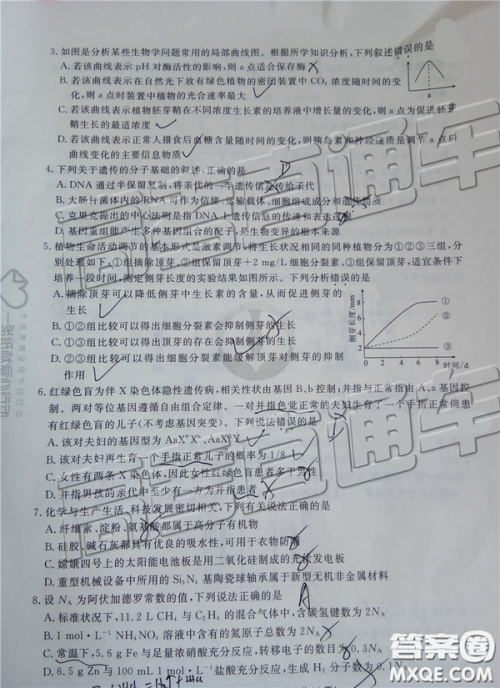 3. 如图是分析某些生物学问题常用的局部曲线图。根据所学知识分析,下列叙述错误的是
A. 若该曲线表示 pH 对酶活性的影响,则 a 点适合保存酶
B. 若该曲线表示在自然光下放有绿色植物的密闭装置中 CO₂ 浓度随时间的变
化,则 a 点时装置中植物的光合速率最大
C. 若该曲线表示植物胚芽鞘在不同浓度生长素的培养液中增长量的变化,则 a 点为促进胚芽
鞘生长的最适浓度
D. 若该曲线表示正常人摄食后血糖含量随时间的变化,则胰岛素和神经递质是调节 a 点后
曲线变化的主要信息物质
a
4. 下列关于遗传的分子基础的叙述,正确的是
D
A. DNA 通过半保留复制,将亲代的一半遗传信息传给子代
B. 大肠杆菌体内的 RNA 可作为信使、运输载体、细胞组成成分和遗传物质
C. 克里克提出的中心法则是指 DNA 上遗传信息的传递和表达
D. 基因重组能产生多种基因组合的配子,是生物变异的根本来源
5. 植物生命活动调节的基本形式是激素调节,将生长状况相同的同种植物分为①②③三组,分
别处理如下,①摘除顶芽,②保留顶芽+2 mg/L 细胞分裂素,③保留顶芽,适宜条件下
培养一段时间,测定侧芽长度的实验结果如图所示。下列分析错误的是
A. 摘除顶芽可以降低侧芽中生长素的含量,从而促进侧芽的
生长
B. ①②组比较可以得出细胞分裂素会抑制侧芽的生长
C. ①③组比较可以得出顶芽会抑制侧芽的生长
D. ②③组比较可以得出细胞分裂素能缓解顶芽对侧芽的抑制
作用
侧芽长度/mm
8
6
4
2
0 2 4 6 8 时间/d
6. 红绿色盲为伴 X 染色体隐性遗传病,相关性状由基因 B、b 控制;并指由常染色体上的 A、a 基因
控制。两对等位基因遵循自由组合定律。一对并指色觉正常的夫妇生育了一个手指正常但患
有红绿色盲的儿子(不考虑基因突变)。下列说法错误的是
A. 该对夫妇的基因型为 AaXᴮXᵇ、AaXᴮY
B. 该对夫妇再生育一个手指正常儿子的概率为 1/8
C. 女性有两条 X 染色体,因此女性红绿色盲患者多于男性
D. 并指男孩的亲代中至少有一方为并指患者
7. 化学与生产生活、科技发展密切相关,下列有关说法正确的是
A. 纤维素、淀粉、氨基酸都属于高分子有机物
B. 硅胶、碱石灰都具有优良的吸水性,可用于衣物防潮
C. 嫦娥四号上的太阳能电池板是用二氧化硅制成的光伏发电板
D. 重型机械设备中所用的 Si₃N₄ 基陶瓷球轴承属于新型无机非金属材料
8. 设 Nᴀ 为阿伏加德罗常数的值,下列说法正确的是
A
A. 标准状况下,11.2 L CH₄ 与 C₂H₄ 的混合气体中,含碳氢键数为 2Nᴀ
B. 1 mol·L⁻¹ NH₄NO₃ 溶液中含有的氮原子总数为 2Nᴀ
C. 常温下,5.6 g Fe 与足量浓硝酸充分反应,转移电子的数目为 0.3Nᴀ
D. 6.5 g Zn 与 100 mL 1 mol·L⁻¹ 盐酸充分反应,生成 H₂ 分子数为 0.1Nᴀ
高考直通车
答案圈
MXQE.COM